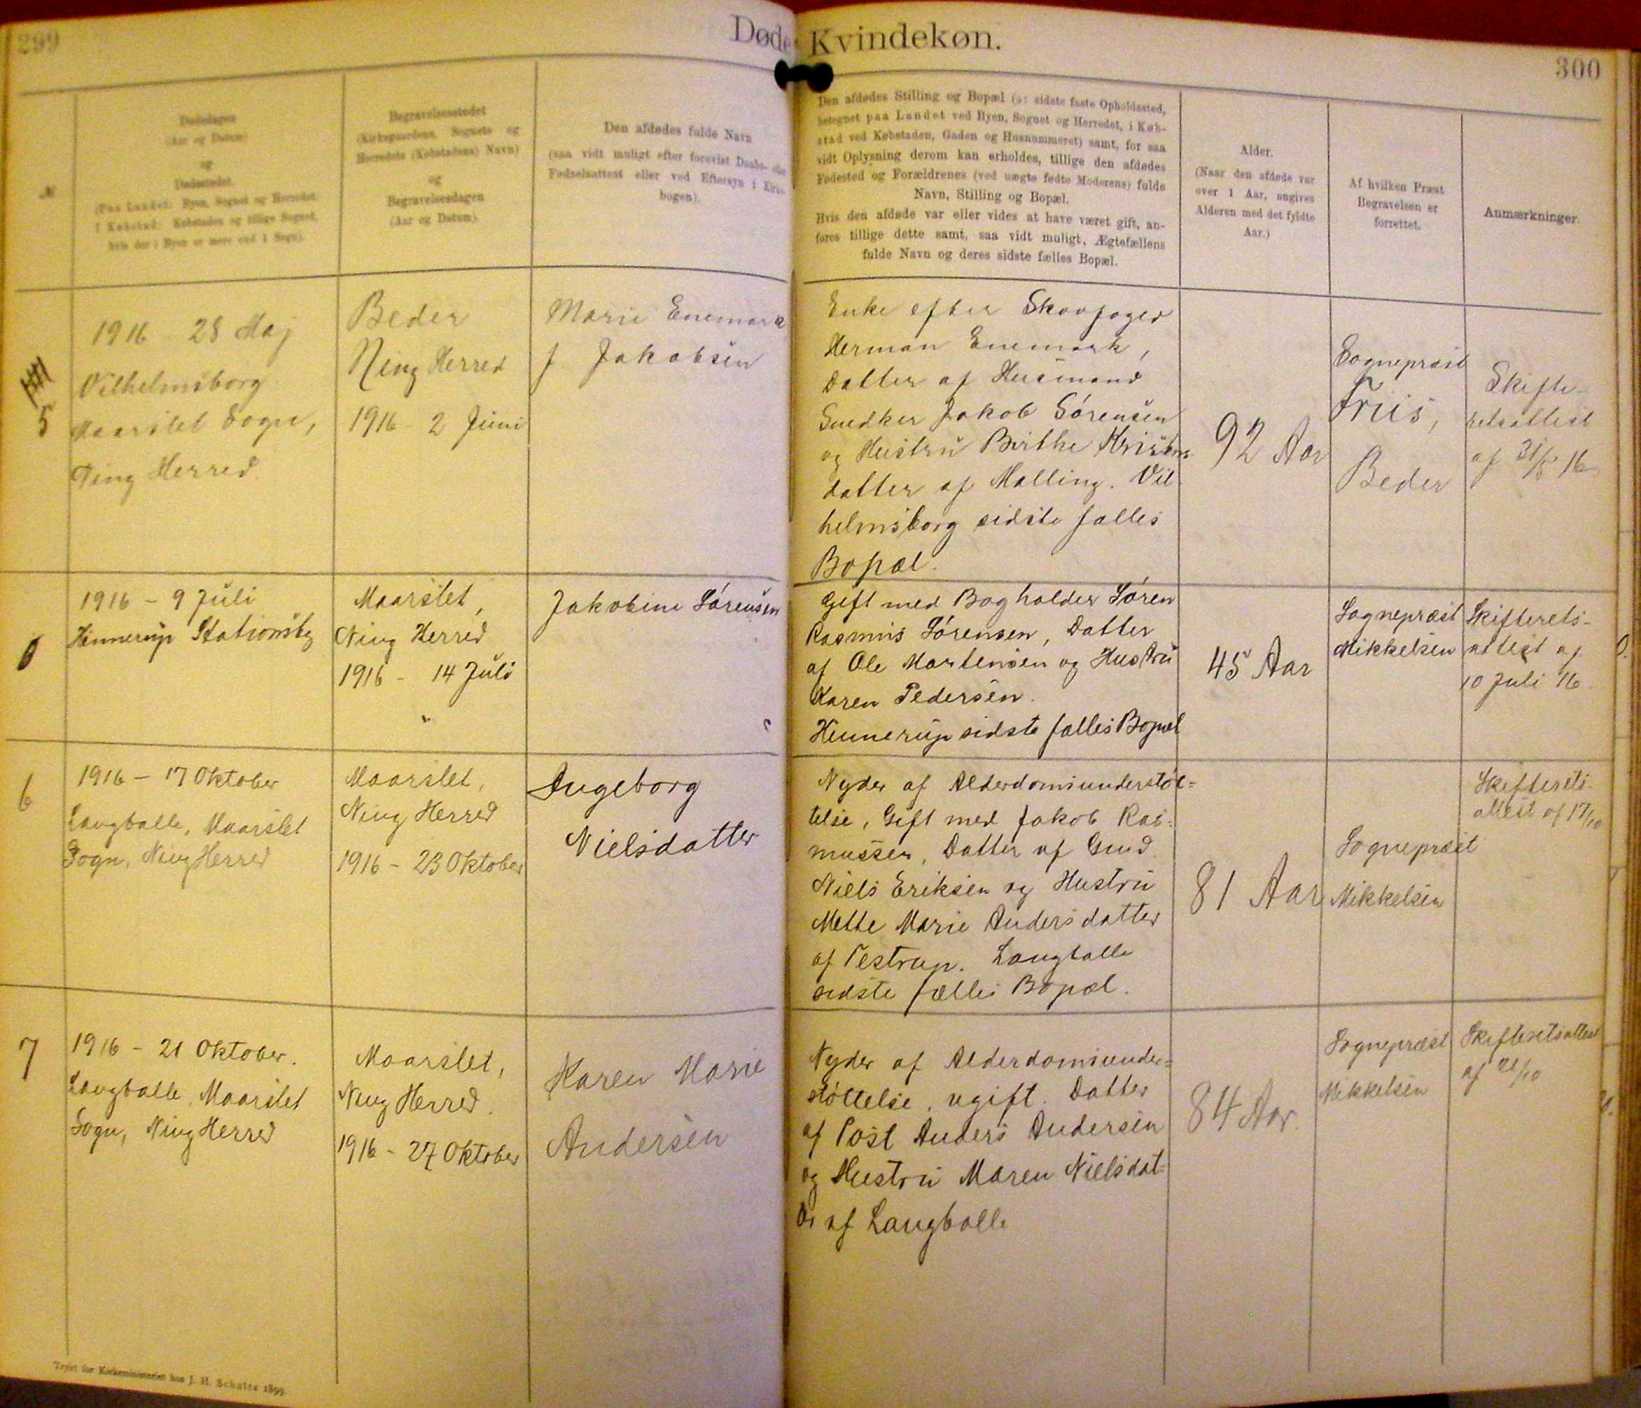 299
Døde Kvindekøn.
300
№
Dødsdagen
(Aar og Datum)
og
Dødsstedet.
(Paa Landet: Byen, Sognet og Herredet.
I Købstad: Købstaden og tillige Sognet,
hvis der i Byen er mere end 1 Sogn).
Begravelsesstedet
(Kirkegaardens, Sognets og
Herredets (Købstadens) Navn)
og
Begravelsesdagen
(Aar og Datum).
Den afdødes fulde Navn
(saa vidt muligt efter forevist Daabs- eller
Fødselsattest eller ved Eftersyn i Kirke-
bogen).
Den afdødes Stilling og Bopæl (ɔ: sidste faste Opholdssted,
betegnet paa Landet ved Byen, Sognet og Herredet, i Køb-
stad ved Købstaden, Gaden og Husnummeret) samt, for saa
vidt Oplysning derom kan erholdes, tillige den afdødes
Fødested og Forældrenes (ved uægte fødte Moderens) fulde
Navn, Stilling og Bopæl.
Hvis den afdøde var eller vides at have været gift, an-
føres tillige dette samt, saa vidt muligt, Ægtefællens
fulde Navn og deres sidste fælles Bopæl.
Alder.
(Naar den afdøde var
over 1 Aar, angives
Alderen med det fyldte
Aar.)
Af hvilken Præst
Begravelsen er
forrettet.
Anmærkninger.
5
1916 - 28 Maj
Vilhelmsborg
Maarslet Sogn,
Ning Herred.
Beder
Ning Herred
1916 - 2 Juni
Marie Enemark
f Jakobsen
Enke efter Skovfoged
Herman Enemark,
Datter af Husmand
Snedker Jakob Sørensen
og Hustru Birthe Kristens
datter af Malling. Vil
helmsborg sidste fælles
Bopæl.
92 Aar
Sognepræst
Friis,
Beder
Skifte-
retsattest
af 31/5 16
1916 - 9 Juli
Hinnerup Stationsby
Maarslet,
Ning Herred
1916 - 14 Juli
"
Jakobine Sørensen
Gift med Bogholder Søren
Rasmus Sørensen, Datter
af Ole Mortensen og Hustru
Karen Pedersen.
Hinnerup sidste fælles Bopæl
45 Aar
Sognepræst
Mikkelsen
Skifterets-
attest af
10 Juli 16
6
1916 - 17 Oktober
Langballe, Maarslet
Sogn, Ning Herred
Maarslet,
Ning Herred
1916 - 23 Oktober
Ingeborg
Nielsdatter
Nyder af Alderdomsunderstøt=
telse, Gift med Jakob Ras=
mussen, Datter af Gmd.
Niels Eriksen og Hustru
Mette Marie Andersdatter
af Testrup. Langballe
sidste fælles Bopæl.
81 Aar
Sognepræst
Mikkelsen
Skifterets
attest af 17/10
7
1916 - 21 Oktober.
Langballe Maarslet
Sogn, Ning Herred
Maarslet,
Ning Herred.
1916 - 27 Oktober
Karen Marie
Andersen
Nyder af Alderdomsunder=
støttelse, ugift. Datter
af Post Anders Andersen
og Hustru Maren Nielsdat=
ter af Langballe
84 Aar.
Sognepræst
Mikkelsen
Skifteretsattest
af 21/10
Trykt for Kirkeministeriet hos J. H. Schultz 1899.